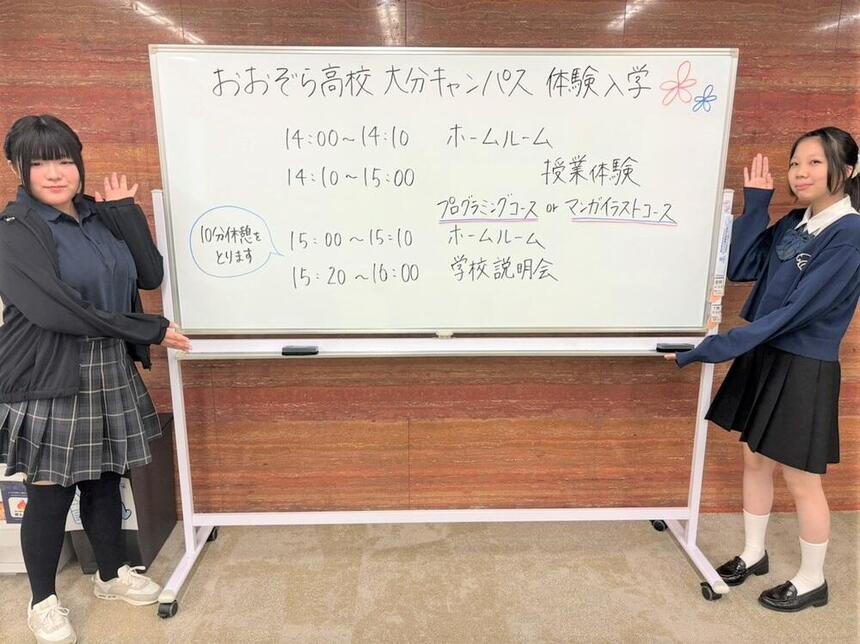 おおぞら高校 大分キャンパス 体験入学
14:00～14:10 ホームルーム
14:10～15:00 授業体験
プログラミングコース or マンガイラストコース
10分休憩を
とります
15:00～15:10 ホームルーム
15:20～16:00 学校説明会